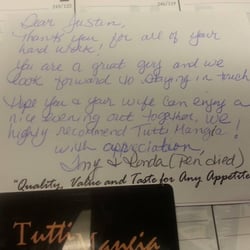 Dear Justin,
Thanks you, for all of your
hard work!
You are a great guy and we
look forward to staying in touch
Hope you & your wife can enjoy a
nice evening out together, we
highly recommend Tutti Mangia!
with appreciation,
& Linda
"Quality, Value and Taste for Any Appetite
Tutti
Mangia